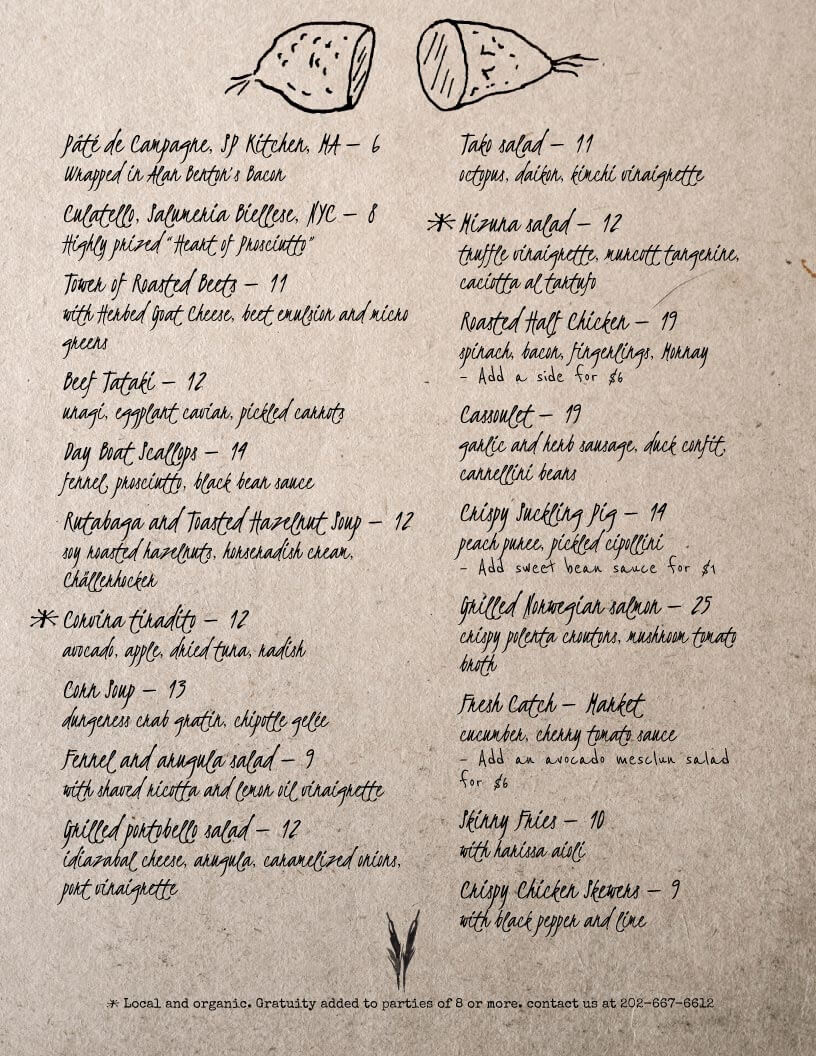 Pâté de Campagne, SP Kitchen, MA – 6
Wrapped in Alan Benton's Bacon
Culatello, Salumeria Biellese, NYC – 8
Highly prized "Heart of Prosciutto"
Tower of Roasted Beets – 11
with Herbed Goat Cheese, beet emulsion and micro
greens
Beef Tataki – 12
unagi, eggplant caviar, pickled carrots
Day Boat Scallops – 14
fennel, prosciutto, black bean sauce
Rutabaga and Toasted Hazelnut Soup – 12
soy roasted hazelnuts, horseradish cream,
Challerhocker
* Corvina tiradito – 12
avocado, apple, dried tuna, radish
Corn Soup – 13
dungeness crab gratin, chipotle gelée
Fennel and arugula salad – 9
with shaved ricotta and lemon oil vinaigrette
Grilled portobello salad – 12
idiazabal cheese, arugula, caramelized onions,
port vinaigrette
Tako salad – 11
octopus, daikon, kimchi vinaigrette
* Mizuna salad – 12
truffle vinaigrette, murcott tangerine,
caciotta al tartufo
Roasted Half Chicken – 19
spinach, bacon, fingerlings, Mornay
- Add a side for $6
Cassoulet – 19
garlic and herb sausage, duck confit,
cannellini beans
Crispy Suckling Pig – 14
peach puree, pickled cipollini
- Add sweet bean sauce for $1
Grilled Norwegian salmon – 25
crispy polenta croutons, mushroom tomato
broth
Fresh Catch – Market
cucumber, cherry tomato sauce
- Add an avocado mesclun salad
for $6
Skinny Fries – 10
with harissa aioli
Crispy Chicken Skewers – 9
with black pepper and lime
* Local and organic. Gratuity added to parties of 8 or more. contact us at 202-667-6612